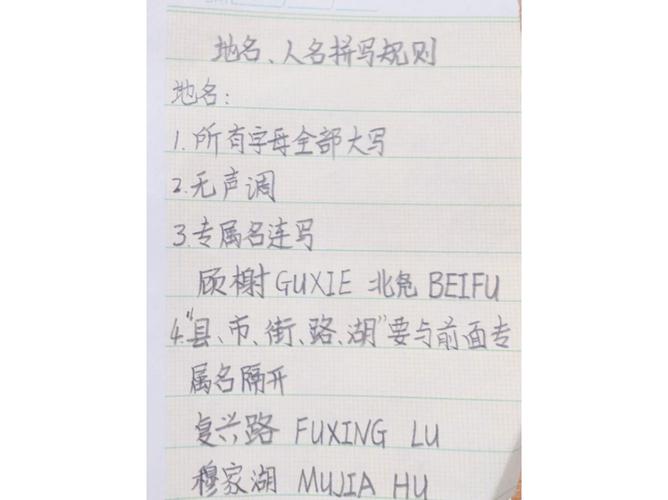 地名、人名拼写规则
地名：
1.所有字母全部大写
2.无声调
3.专属名连写
顾榭GUXIE 北凫 BEIFU
4."县、市、街、路、湖"要与前面专
属名隔开
复兴路 FUXING LU
穆家湖 MUJIA HU